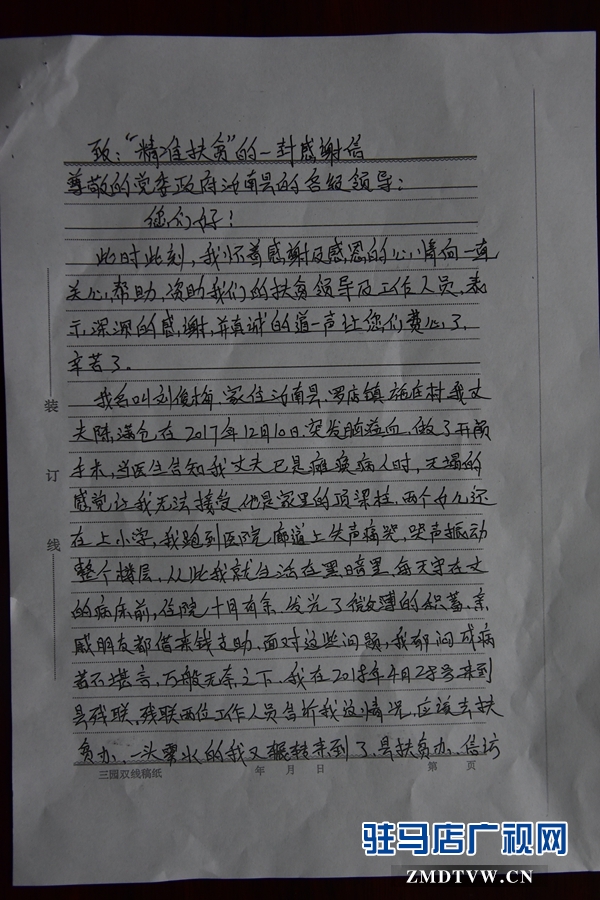 致:“精准扶贫”的一封感谢信
尊敬的党委政府汝南县的各级领导:
您们好!
此时此刻,我怀着感谢及感恩的心,将向一直
关心,帮助,资助我们的扶贫领导及工作人员,表
示深深的感谢,并真诚的道一声让您们费心了,
辛苦了。
我名叫刘俊梅,家住汝南县,罗店镇 庄村我丈
夫陈满仓在2017年12月10日.突发脑溢血,做了开颅
手术,当医生告知我丈夫已是瘫痪病人时,天塌的
感觉让我无法接受,他是家里的顶梁柱,两个女儿还
在上小学,我跑到医院廊道上失声痛哭,哭声振动
整个楼层.从此我就生活在黑暗里,每天守在丈
的病床前,住院十月有余.发光了微薄的积蓄,亲
戚朋友都借来钱支助.面对这些问题,我郁闷成病
苦不堪言,万般无奈之下.我在2018年4月28号来到
县残联,残联两位工作人员告析我这情况,应该去扶
贫办.一头雾水的我又辗转来到了.县扶贫办.信访
装
订
线
三园双线稿纸 年 月 日 第 页
驻马店广视网
ZMDTVW.CN